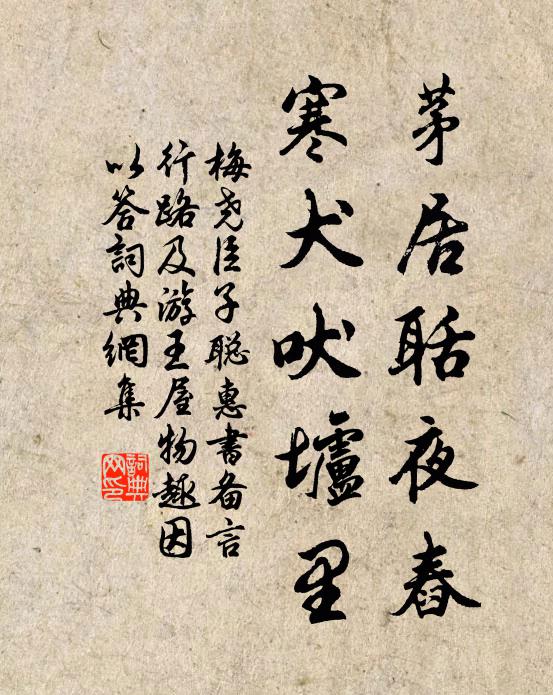 茅居聒夜舂
寒犬吠壚里
梅尧臣子聪惠書备言
行路及游王屋物趣因
以答詞典網集
詞典網印